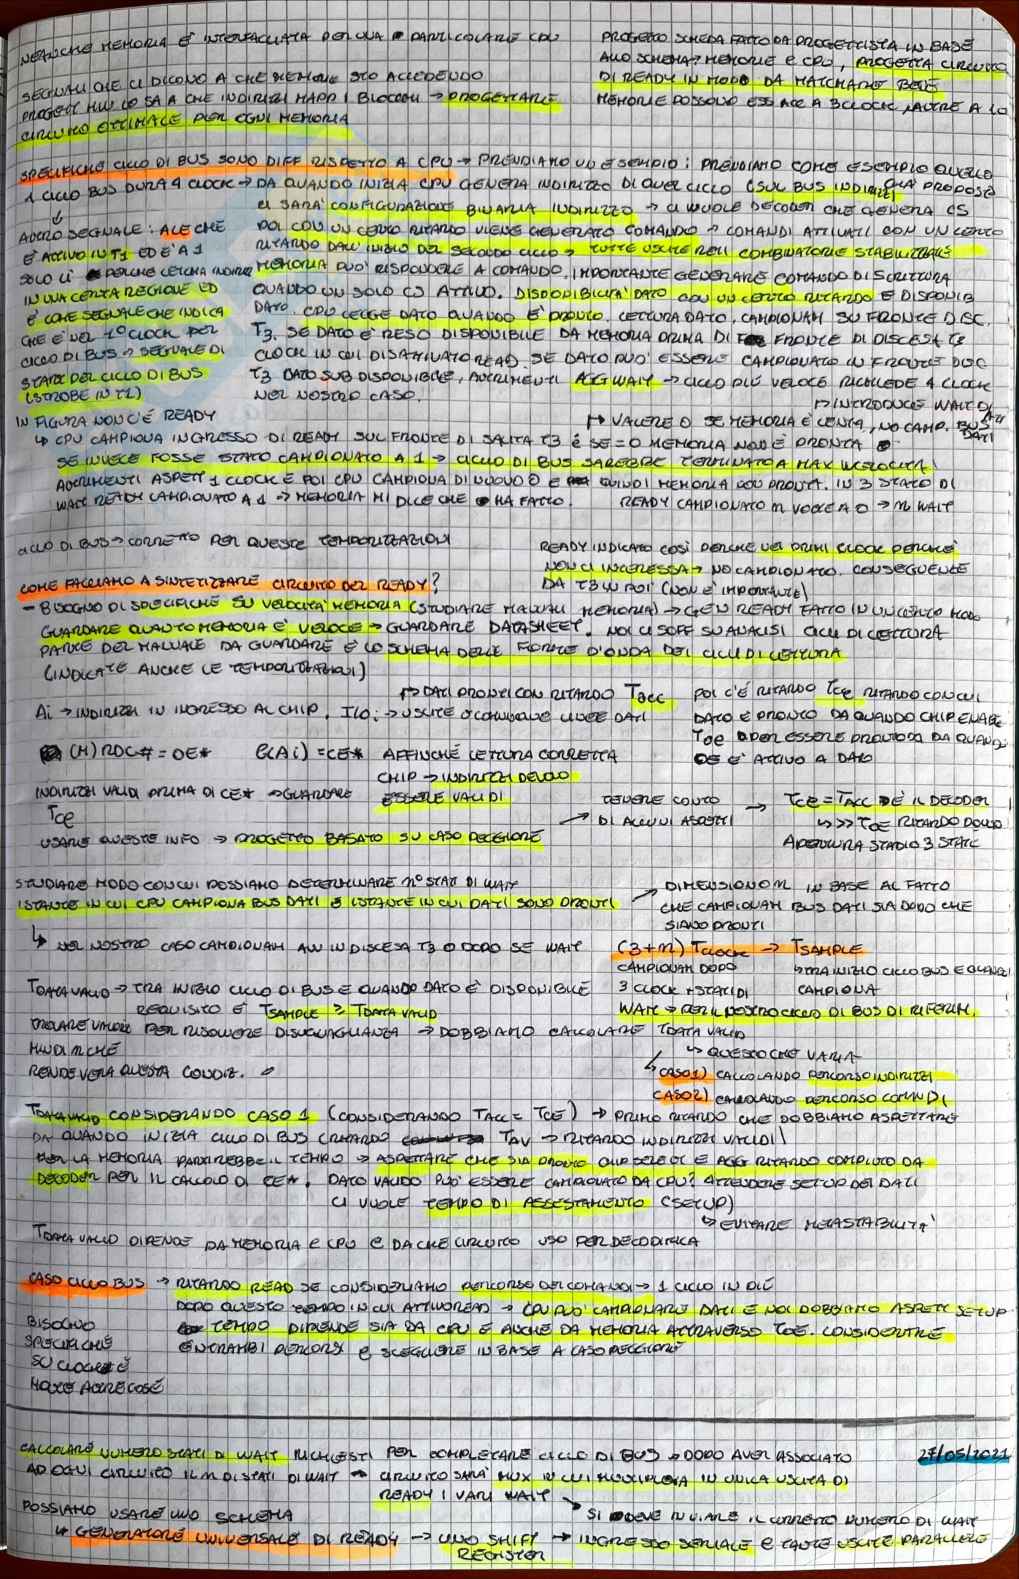 NEANCHE MEMORIA È INTERFACCIATA PER UNA PARTICOLARE CPU
SEGNALI CHE CI DICONO A CHE MEMORIE STO ACCEDENDO
PROGETT HW LO SA A CHE INDIRIZZI MAPP I BLOCCHI → PROGETTARE
CIRCUITO OTTIMALE PER OGNI MEMORIA
PROGETTO SCHEDA FATTO DA PROGETTISTA IN BASE
ALLO SCHEMA? MEMORIE E CPU, PROGETTA CIRCUITO
DI READY IN MODO DA MATCHARE BENE
MEMORIE POSSONO ESS ACC A 3 CLOCK, ALTRE A 10
SPECIFICHE CICLO DI BUS SONO DIFF RISPETTO A CPU → PRENDIAMO UN ESEMPIO: PRENDIAMO COME ESEMPIO QUELLO
GIÀ PROPOSTO
1 CICLO BUS DURA 4 CLOCK → DA QUANDO INIZIA CPU GENERA INDIRIZZO DI QUEL CICLO (SUL BUS INDIRIZZI
CI SARÀ CONFIGURAZIONE BINARIA INDIRIZZO → CI VUOLE DECODER CHE GENERA CS
ALTRO SEGNALE: ALE CHE
È ATTIVO IN T1 ED È A 1
SOLO LÌ PERCHÉ LATCHA INDIRIZ
IN UNA CERTA REGIONE ED
È COME SEGNALE CHE INDICA
CHE È NEL 1° CLOCK PER
CICLO DI BUS → SEGNALE DI
START DEL CICLO DI BUS
(STROBE IN T1)
POI CON UN CERTO RITARDO VIENE GENERATO COMANDO → COMANDI ATTIVATI CON UN CERTO
RITARDO DALL'INIZIO DEL SECONDO CICLO → TUTTE USCITE RETI COMBINATORIE STABILIZZATE
MEMORIA PUÒ RISPONDERE A COMANDO. IMPORTANTE GENERARE COMANDO DI SCRITTURA
QUANDO UN SOLO CS ATTIVO. DISPONIBILITÀ DATO CON UN CERTO RITARDO È DISPONIB
DATO. CPU LEGGE DATO QUANDO È PRONTO. LETTURA DATO, CAMPIONAM SU FRONTE DISC.
T3. SE DATO È RESO DISPONIBILE DA MEMORIA PRIMA DI FRONTE DI DISCESA T3
CLOCK IN CUI DISATTIVATO READ. SE DATO PUÒ ESSERE CAMPIONATO IN FRONTE DISC
T3 DATO SUB DISPONIBILE, ALTRIMENTI AGG WAIT → CICLO PIÙ VELOCE RICHIEDE 4 CLOCK
NEL NOSTRO CASO.
↦ INTRODUCE WAIT DI
IN FIGURA NON C'È READY
↦ VALERE 0 SE MEMORIA È LENTA, NO CAMP. BUS DATI
↳ CPU CAMPIONA INGRESSO DI READY SUL FRONTE DI SALITA T3 E SE = 0 MEMORIA NON È PRONTA
SE INVECE FOSSE STATO CAMPIONATO A 1 → CICLO DI BUS SAREBBE TERMINATO A MAX VELOCITÀ
ALTRIMENTI ASPETT 1 CLOCK E POI CPU CAMPIONA DI NUOVO 0 E QUINDI MEMORIA NON PRONTA. IN 3 STATO DI
WAIT READY CAMPIONATO A 1 → MEMORIA MI DICE CHE HA FATTO. READY CAMPIONATO M VOLTE A 0 → M WAIT
CICLO DI BUS → CORRETTO PER QUESTE TEMPORIZZAZIONI
READY INDICATO COSÌ PERCHÉ NEI PRIMI CLOCK PERCHÉ
NON CI INTERESSA → NO CAMPIONATO. CONSEGUENTE
DA T3 IN POI (NON È IMPORTANTE)
COME FACCIAMO A SINTETIZZARE CIRCUITO DEL READY?
- BISOGNO DI SPECIFICHE SU VELOCITÀ MEMORIA (STUDIARE MANUALI MEMORIA) → GEN READY FATTO IN UN CERTO MODO
GUARDARE QUANTO MEMORIA È VELOCE → GUARDARE DATASHEET. NOI CI SOFF SU ANALISI CICLI DI LETTURA
PARTE DEL MANUALE DA GUARDARE È LO SCHEMA DELLE FORME D'ONDA DEI CICLI DI LETTURA
(INDICATE ANCHE LE TEMPORIZZAZIONI)
↦ DATI PRONTI CON RITARDO TACC
Ai → INDIRIZZI IN INGRESSO AL CHIP. I/Oi → USCITE O COMUNQUE LINEE DATI
POI C'È RITARDO TCE RITARDO CON CUI
DATO È PRONTO DA QUANDO CHIP ENABLE
TOE PER ESSERE PRONTO DA QUANDO
OE È ATTIVO A DATO
(M)RDC# = OE* f(Ai) = CE* AFFINCHÉ LETTURA CORRETTA
CHIP → INDIRIZZI DEVONO
ESSERE VALIDI
INDIRIZZI VALIDI PRIMA DI CE* → GUARDARE
TCE
TENERE CONTO
DI ALCUNI ASPETTI
→ TCE = TACC È IL DECODER
↳ >> TOE RITARDO DOVUTO
APERTURA STADIO 3 STATE
USARE QUESTE INFO → PROGETTO BASATO SU CASO PEGGIORE
STUDIARE MODO CON CUI POSSIAMO DETERMINARE N° STATI DI WAIT
ISTANTE IN CUI CPU CAMPIONA BUS DATI E ISTANTE IN CUI DATI SONO PRONTI
DIMENSIONO M IN BASE AL FATTO
CHE CAMPIONAM BUS DATI SIA DOPO CHE
SIANO PRONTI
↳ NEL NOSTRO CASO CAMPIONAM AVV IN DISCESA T3 O DOPO SE WAIT
(3+m) TCLOCK → TSAMPLE
CAMPIONAM DOPO
3 CLOCK + STATI DI
WAIT → PER IL NOSTRO CICLO DI BUS DI RIFERIM.
↳ TRA INIZIO CICLO BUS E QUANDO
CAMPIONA
TDATAVALID → TRA INIZIO CICLO DI BUS E QUANDO DATO È DISPONIBILE
REQUISITO È TSAMPLE ≥ TDATAVALID
TROVARE VALORE PER RISOLVERE DISUGUAGLIANZA → DOBBIAMO CALCOLARE TDATAVALID
MIN DI M CHE
RENDE VERA QUESTA CONDIZ.
↳ QUELLO CHE VARIA
CASO 1) CALCOLANDO PERCORSO INDIRIZZI
CASO 2) CALCOLANDO PERCORSO COMANDI
TDATAVALID CONSIDERANDO CASO 1 (CONSIDERANDO TACC = TCE) → PRIMO RITARDO CHE DOBBIAMO ASPETTARE
DA QUANDO INIZIA CICLO DI BUS (RITARDO TAV → RITARDO INDIRIZZI VALIDI)
PER LA MEMORIA PARTIREBBE IL TEMPO → ASPETTARE CHE SIA PRONTO CHIP SELECT E AGG RITARDO COMPIUTO DA
DECODER PER IL CALCOLO DI CE*. DATO VALIDO PUÒ ESSERE CAMPIONATO DA CPU? ATTENDERE SETUP DEI DATI
CI VUOLE TEMPO DI ASSESTAMENTO (SETUP)
↳ EVITARE METASTABILITÀ
TDATAVALID DIPENDE DA MEMORIA E CPU E DA CHE CIRCUITO USO PER DECODIFICA
CASO CICLO BUS → RITARDO READ SE CONSIDERIAMO PERCORSO DEI COMANDI → 1 CICLO IN PIÙ
DOPO QUESTO TEMPO IN CUI ATTIVO READ → CPU PUÒ CAMPIONARE DATI E NOI DOBBIAMO ASPETT SETUP
TEMPO DIPENDE SIA DA CPU E ANCHE DA MEMORIA ATTRAVERSO TOE. CONSIDERARE
ENTRAMBI PERCORSI E SCEGLIERE IN BASE A CASO PEGGIORE
BISOGNO
SPECIFICHE
SU CLOCK E
MOLTE ALTRE COSE
CALCOLARE NUMERO STATI DI WAIT RICHIESTI PER COMPLETARE CICLO DI BUS → DOPO AVER ASSOCIATO
27/05/2021
AD OGNI CIRCUITO IL M DI STATI DI WAIT → CIRCUITO SARÀ MUX IN CUI MULTIPLEXA IN UNICA USCITA DI
READY I VARI WAIT
↘ SI DEVE INVIARE IL CORRETTO NUMERO DI WAIT
POSSIAMO USARE UNO SCHEMA
↳ GENERATORE UNIVERSALE DI READY → UNO SHIFT REGISTER → INGRESSO SERIALE E TANTE USCITE PARALLELE